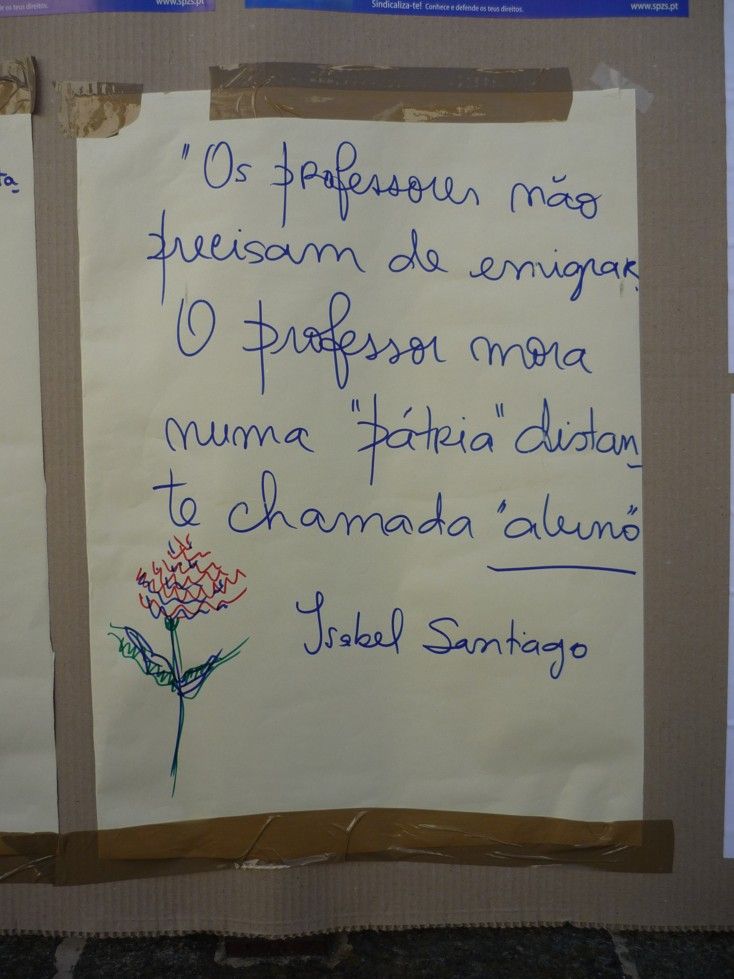 e os teus direitos.
www.spzs.pt
Sindicaliza-te! Conhece e defende os teus direitos.
www.spzs.pt
"Os professores não
precisam de emigrar.
O professor mora
numa "pátria" distan
te chamada "aluno"
Isabel Santiago